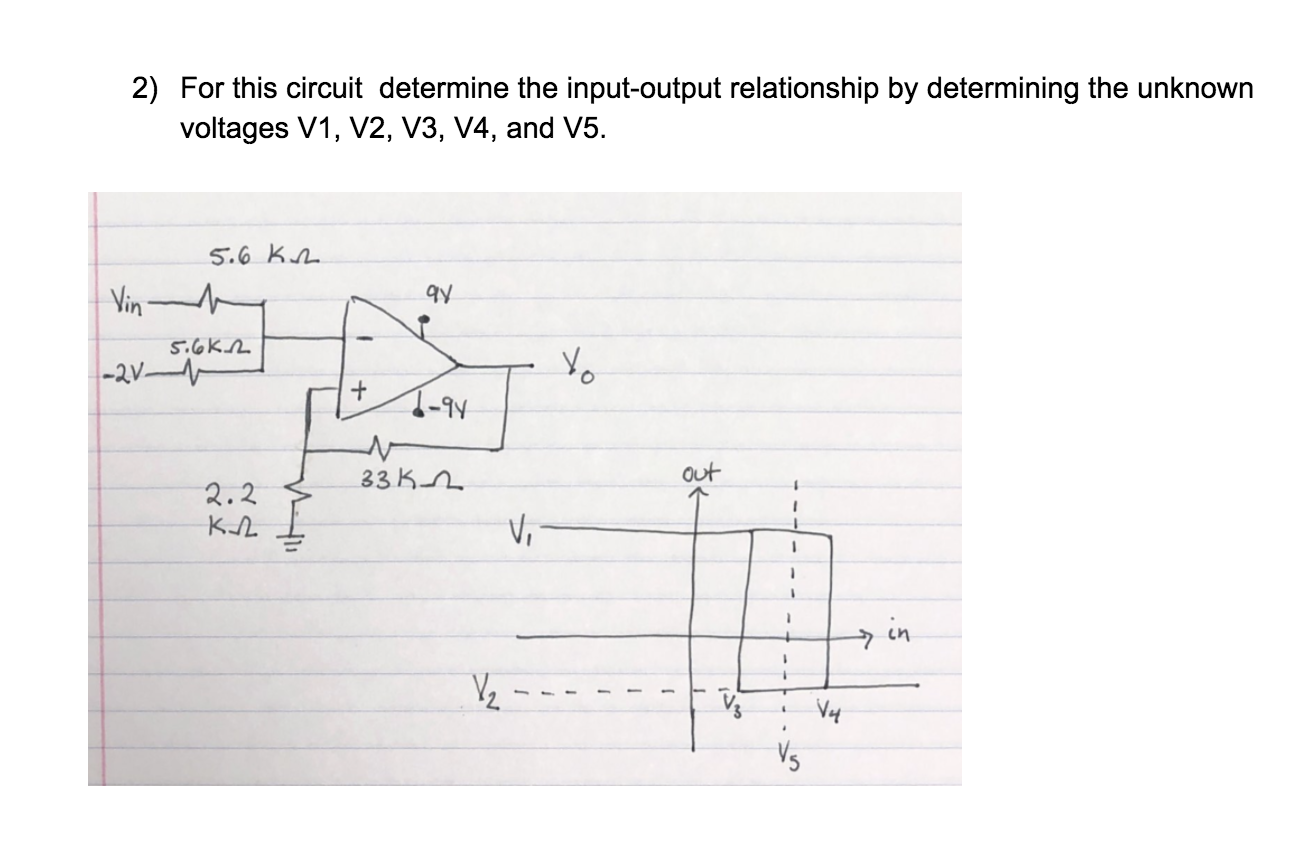 2) For this circuit determine the input-output relationship by determining the unknown
voltages V1, V2, V3, V4, and V5.
5.6 KΩ
9V
Vin
5.6KΩ
-2V
-
+
-9V
Vo
33KΩ
2.2
KΩ
out
V1
in
V2
V3
V4
V5